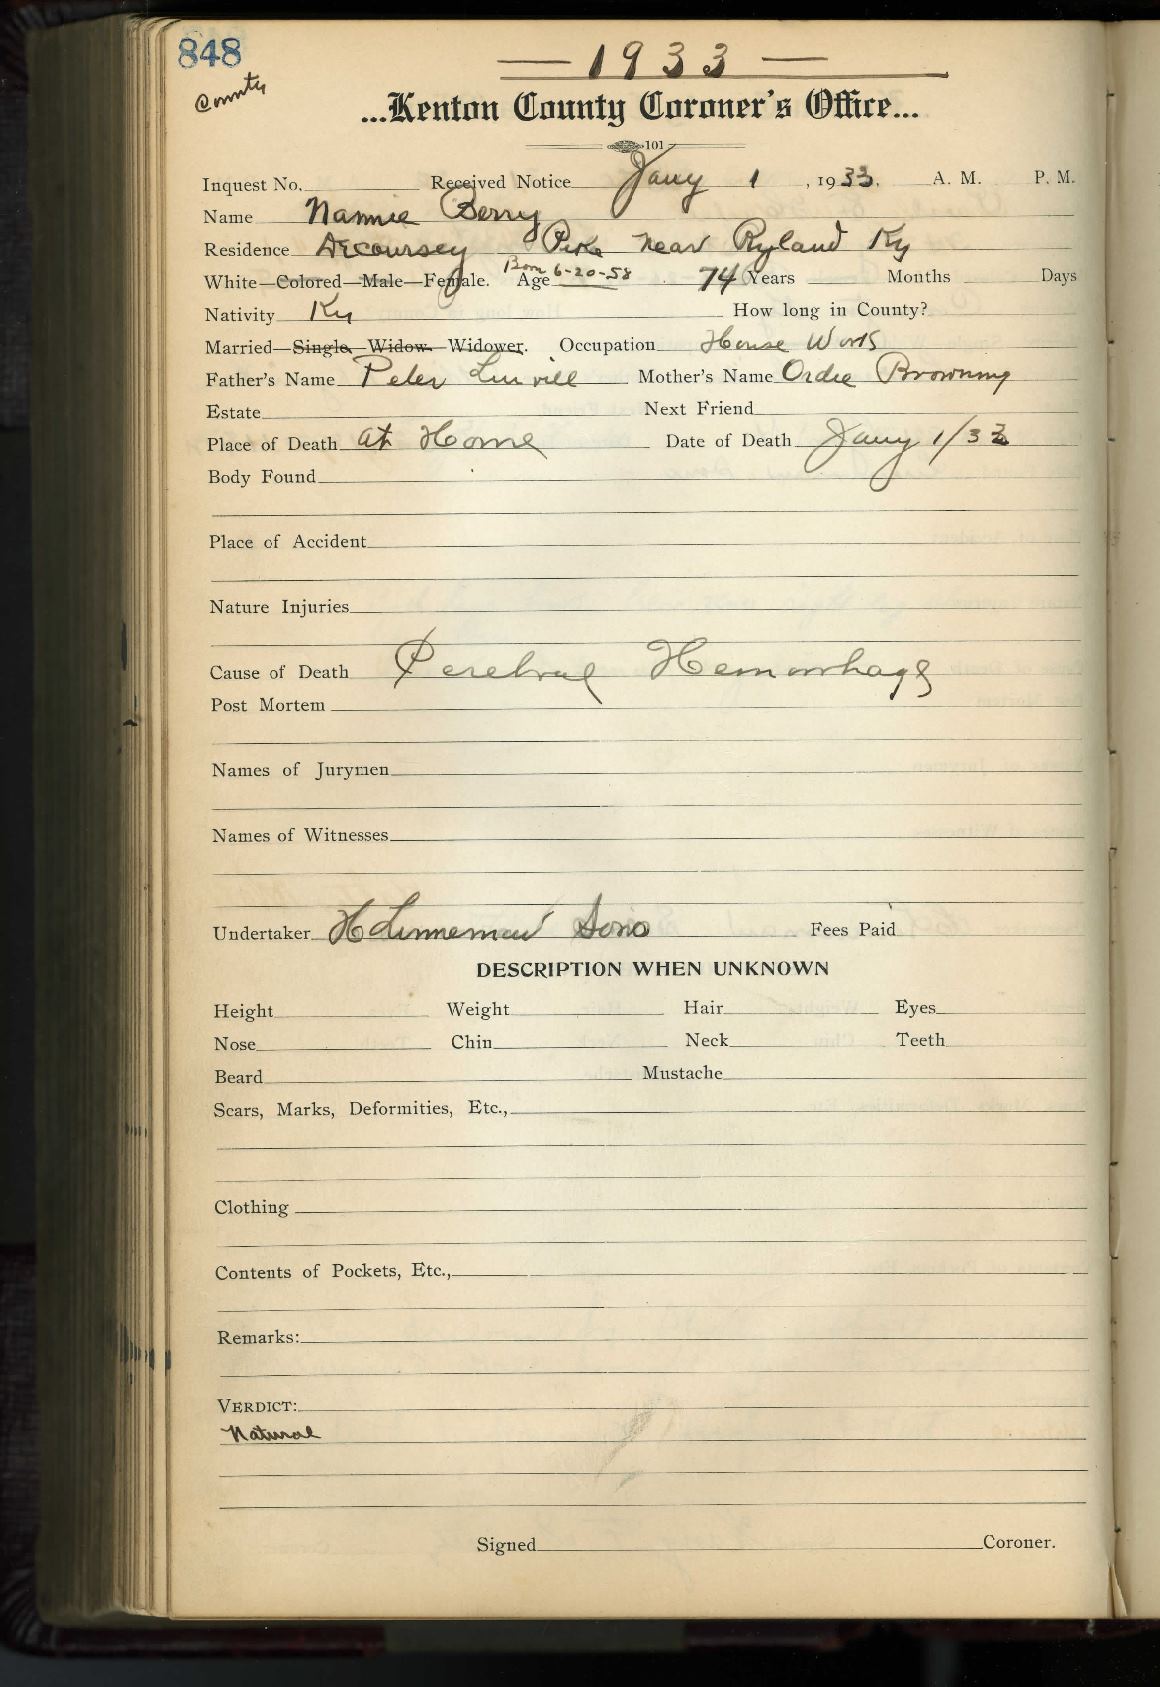 848
County
— 1933 —
...Kenton County Coroner's Office...
101
Inquest No. Received Notice Jany 1, 1933. A. M. P. M.
Name Nannie Berry
Residence Decoursey Pike near Ryland Ky
White—Colored—Male—Female. Age Born 6-20-58 74 Years Months Days
Nativity Ky How long in County?
Married—Single. Widow. Widower. Occupation House Work
Father's Name Peter Linvill Mother's Name Ordie Browning
Estate Next Friend
Place of Death at Home Date of Death Jany 1/33
Body Found
Place of Accident
Nature Injuries
Cause of Death Cerebral Hemorrhage
Post Mortem
Names of Jurymen
Names of Witnesses
Undertaker H Linneman Sons Fees Paid
DESCRIPTION WHEN UNKNOWN
Height Weight Hair Eyes
Nose Chin Neck Teeth
Beard Mustache
Scars, Marks, Deformities, Etc.,
Clothing
Contents of Pockets, Etc.,
Remarks:
VERDICT:
Natural
Signed Coroner.